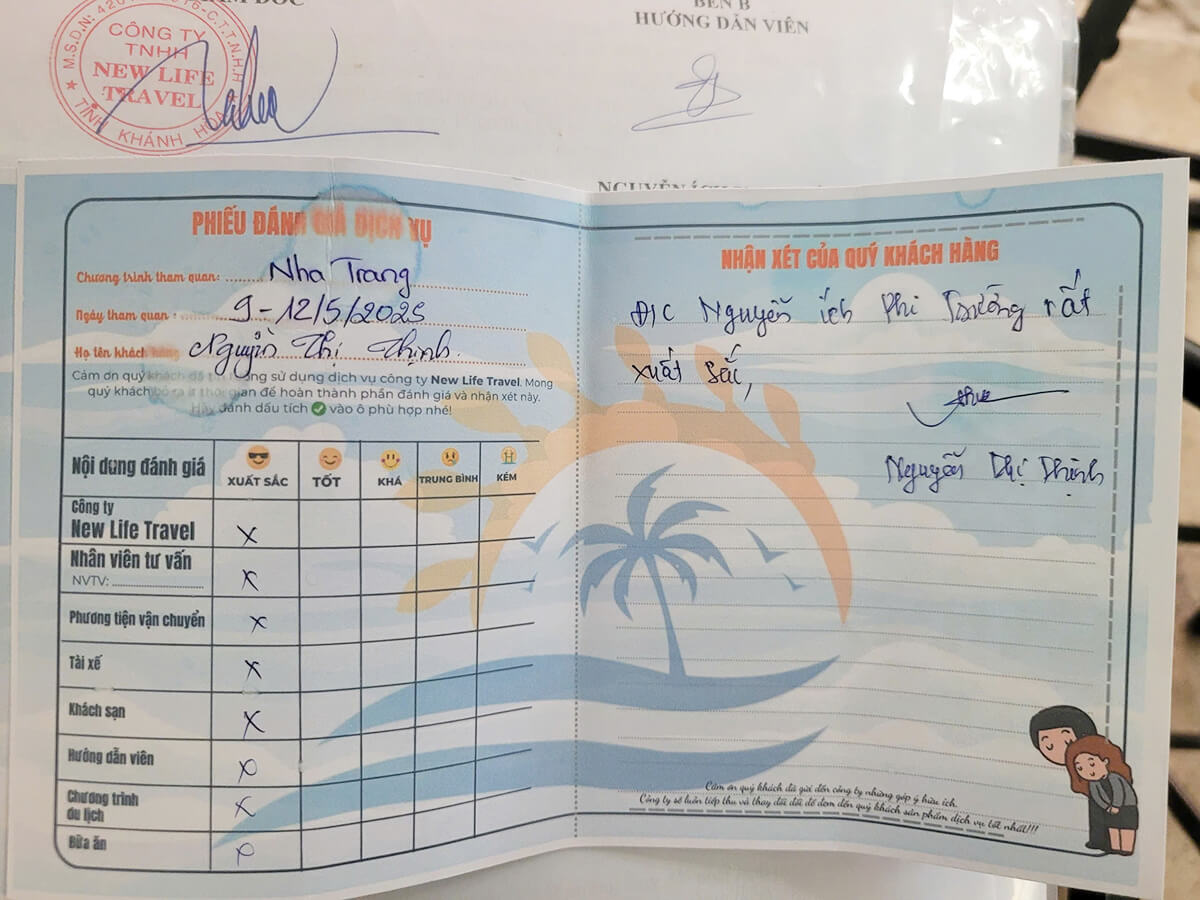 CÔNG TY
TNHH
NEW LIFE
TRAVEL
TỈNH KHÁNH HÒA
BÊN B
HƯỚNG DẪN VIÊN
PHIẾU ĐÁNH GIÁ DỊCH VỤ
Chương trình tham quan: Nha Trang
Ngày tham quan: 9-12/5/2025
Họ tên khách hàng Nguyễn Thị Thịnh.
Cảm ơn quý khách đã tin tưởng sử dụng dịch vụ công ty New Life Travel. Mong
quý khách bỏ ra ít thời gian để hoàn thành phần đánh giá và nhận xét này.
Hãy đánh dấu tích ✓ vào ô phù hợp nhé!
Nội dung đánh giá XUẤT SẮC TỐT KHÁ TRUNG BÌNH KÉM
Công ty
New Life Travel X
Nhân viên tư vấn
NVTV: X
Phương tiện vận chuyển X
Tài xế X
Khách sạn X
Hướng dẫn viên X
Chương trình
du lịch X
Bữa ăn X
NHẬN XÉT CỦA QUÝ KHÁCH HÀNG
Đ/C Nguyễn ích Phi Trường rất
xuất sắc,
Nguyễn Thị Thịnh
Cảm ơn quý khách đã gửi đến công ty những góp ý hữu ích.
Công ty sẽ luôn tiếp thu và thay đổi để đem đến quý khách sản phẩm dịch vụ tốt nhất!!!